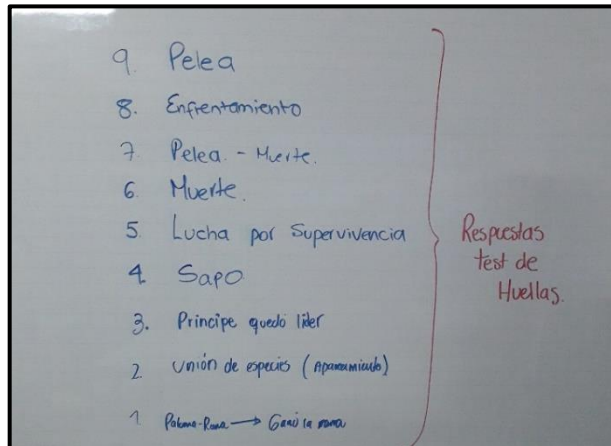 9. Pelea
8. Enfrentamiento
7. Pelea. - Muerte.
6. Muerte.
5. Lucha por Supervivencia
4. Sapo
3. Principe quedó lider
2. Unión de especies (Apareamiento)
1. Paloma-Rana → Ganó la rana
Respuestas
test de
Huellas.